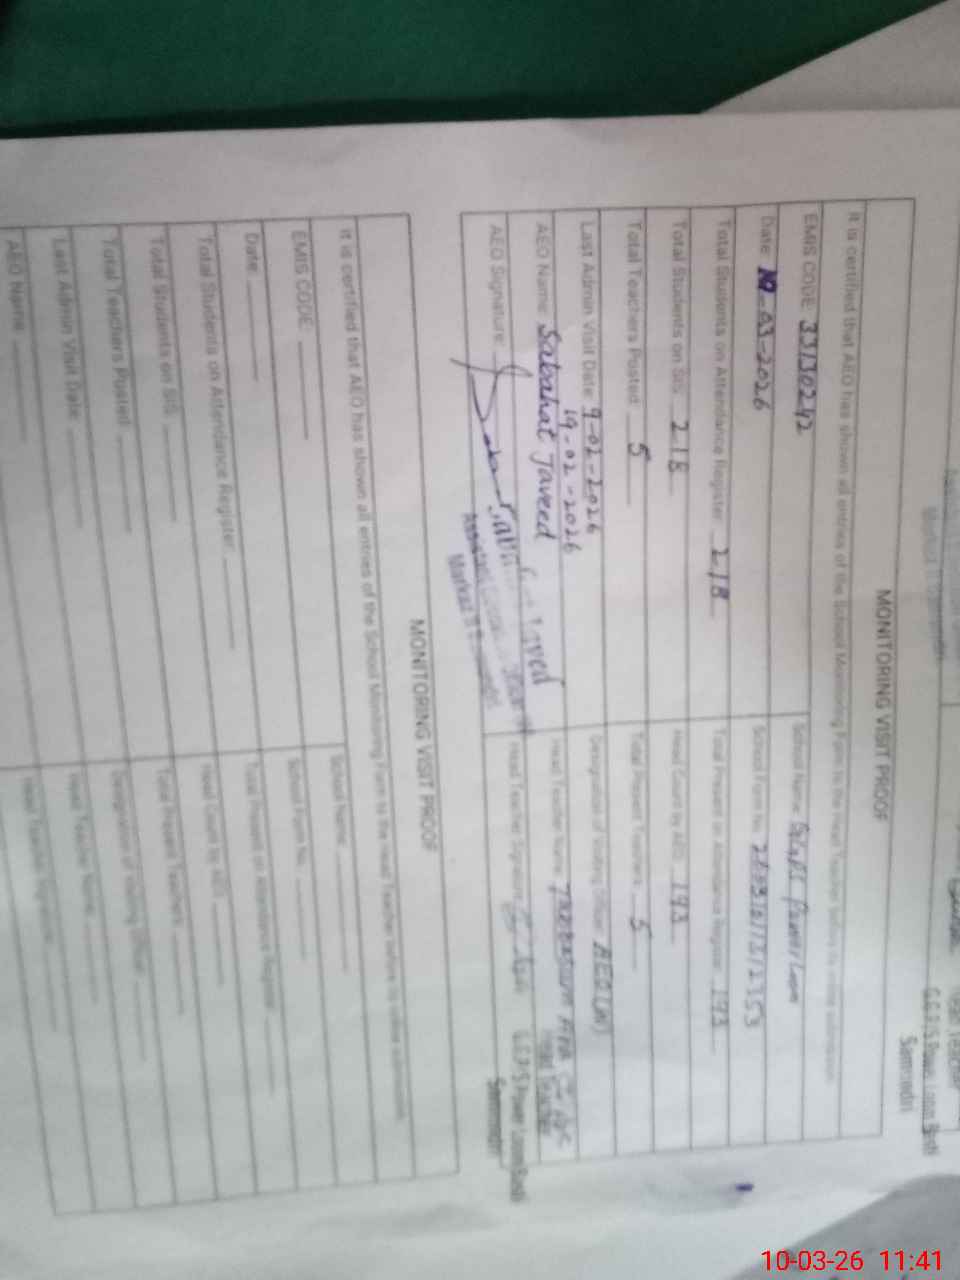 Head Teacher
G.G.P.S Power Loom Basti
Samundri
MONITORING VISIT PROOF
It is certified that AEO has shown all entries of the School Monitoring Form to the Head Teacher before its online submission.
EMIS CODE: 33130242
School Name:
Date: -03-2026
School Form No.
Total Students on Attendance Register: 218
Total Present on Attendance Register: 193
Total Students on SIS: 218
Head Count by AEO: 193
Total Teachers Posted: 5
Total Present Teachers: 5
Last Admin Visit Date: 9-02-2026
19-02-2026
Designation of Visiting Officer: AEO(W)
AEO Name: Sabahat Javeed
Head Teacher Name:
Head Teacher
AEO Signature:
Head Teacher Signature:
G.G.P.S Power Loom Basti
Samundri
MONITORING VISIT PROOF
It is certified that AEO has shown all entries of the School Monitoring Form to the Head Teacher before its online submission.
EMIS CODE:
School Name:
Date:
School Form No.
Total Students on Attendance Register:
Total Present on Attendance Register:
Total Students on SIS:
Head Count by AEO:
Total Teachers Posted:
Total Present Teachers:
Last Admin Visit Date:
Designation of Visiting Officer:
AEO Name:
Head Teacher Name:
Head Teacher Signature:
10-03-26 11:41